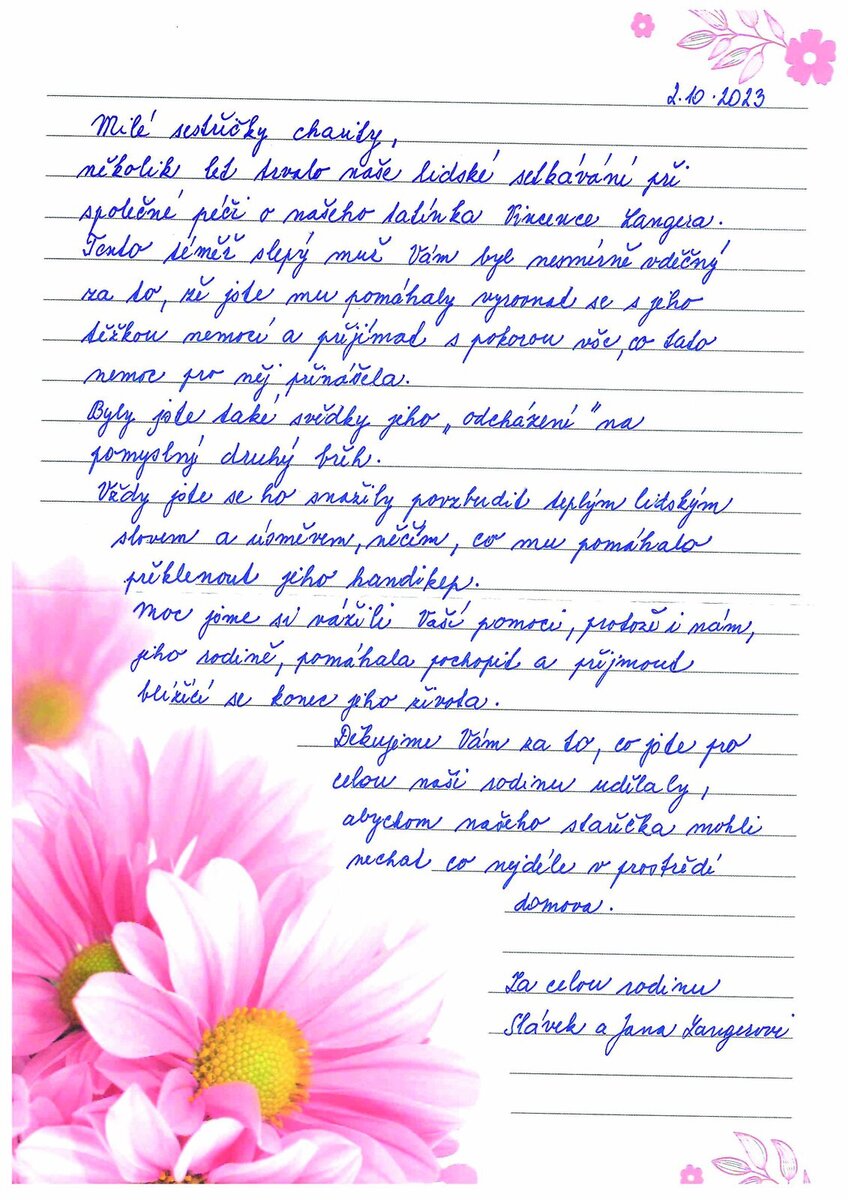 2.10.2023
Milé sestřičky charity,
několik let trvalo naše lidské setkávání při
společné péči o našeho tatínka Vincence Langera.
Tento téměř slepý muž Vám byl nesmírně vděčný
za to, že jste mu pomáhaly vyrovnat se s jeho
těžkou nemocí a přijímat s pokorou vše, co tato
nemoc pro něj přinášela.
Byly jste také svědky jeho „odcházení" na
pomyslný druhý břeh.
Vždy jste se ho snažily povzbudit teplým lidským
slovem a úsměvem, něčím, co mu pomáhalo
překlenout jeho handikep.
Moc jsme si vážili Vaší pomoci, protože i nám,
jeho rodině, pomáhala pochopit a přijmout
blížící se konec jeho života.
Děkujeme Vám za to, co jste pro
celou naši rodinu udělaly,
abychom našeho staříčka mohli
nechat co nejdéle v prostředí
domova.
Za celou rodinu
Slávek a Jana Langerovi